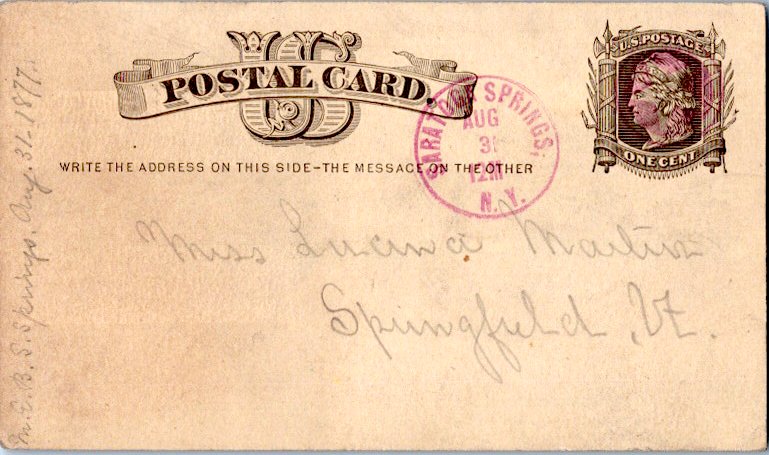 US
POSTAL CARD.
WRITE THE ADDRESS ON THIS SIDE–THE MESSAGE ON THE OTHER
U.S. POSTAGE
ONE CENT
SARATOGA SPRINGS,
AUG
31
12M
N.Y.
Miss Lucina Martin
Springfield, Vt.
M.E.B. S. Springs, Aug. 31. 1877.